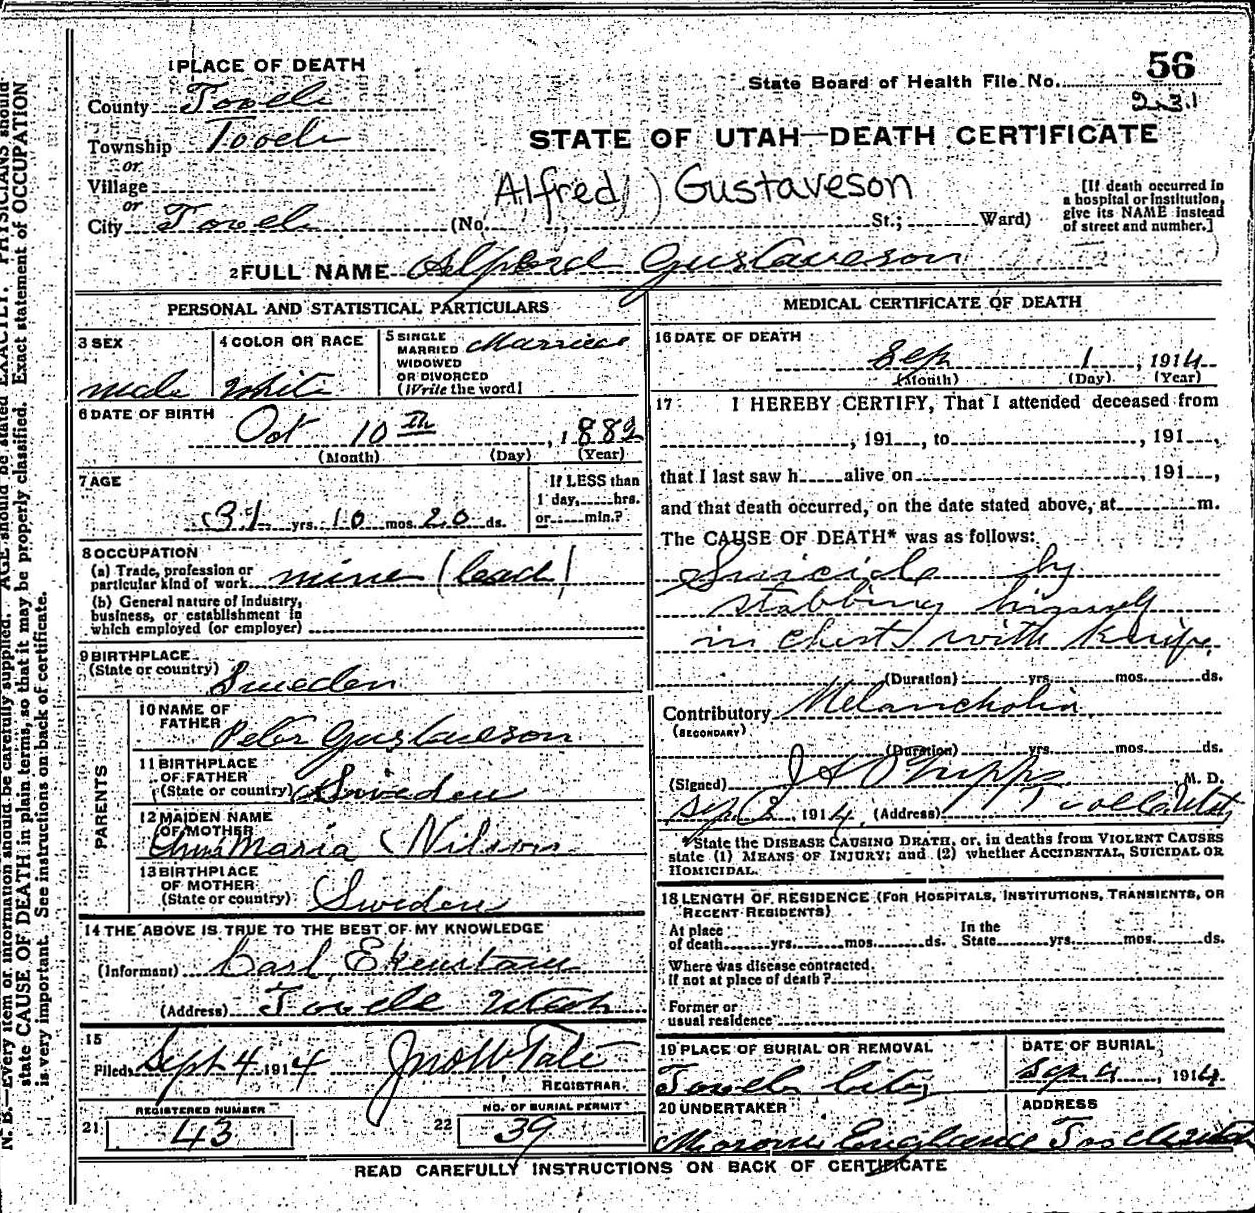 1 PLACE OF DEATH
County Tooele
Township Tooele
or
Village
or
City Tooele
State Board of Health File No. 56
231
STATE OF UTAH—DEATH CERTIFICATE
Alfred Gustaveson
(No. St.; Ward)
[If death occurred in
a hospital or institution,
give its NAME instead
of street and number.]
2 FULL NAME Alferd Gustaveson
PERSONAL AND STATISTICAL PARTICULARS
3 SEX
male
4 COLOR OR RACE
White
5 SINGLE
MARRIED
WIDOWED
OR DIVORCED
(Write the word)
Married
6 DATE OF BIRTH
Oct 10th, 1882
(Month) (Day) (Year)
7 AGE
31 yrs. 10 mos. 20 ds.
If LESS than
1 day, hrs.
or min.?
8 OCCUPATION
(a) Trade, profession or
particular kind of work miner (lead)
(b) General nature of industry,
business, or establishment in
which employed (or employer)
9 BIRTHPLACE
(State or country) Sweden
PARENTS
10 NAME OF
FATHER Peter Gustaveson
11 BIRTHPLACE
OF FATHER
(State or country) Sweden
12 MAIDEN NAME
OF MOTHER
Maria Nilson
13 BIRTHPLACE
OF MOTHER
(State or country) Sweden
14 THE ABOVE IS TRUE TO THE BEST OF MY KNOWLEDGE
(Informant) Carl Ekenstam
(Address) Tooele Utah
15
Filed Sept 4 1914 Jno W Tate
REGISTRAR.
21 REGISTERED NUMBER
43
22 NO. OF BURIAL PERMIT
39
MEDICAL CERTIFICATE OF DEATH
16 DATE OF DEATH
Sep 1, 1914
(Month) (Day) (Year)
17 I HEREBY CERTIFY, That I attended deceased from
, 191 , to , 191 ,
that I last saw h alive on , 191 ,
and that death occurred, on the date stated above, at m.
The CAUSE OF DEATH* was as follows:
Suicide by
stabbing himself
in chest with knife.
(Duration) yrs. mos. ds.
Contributory Melancholia
(SECONDARY)
(Duration) yrs. mos. ds.
(Signed) J A Phipps M. D.
Sep 2, 1914. (Address) Tooele Utah
*State the DISEASE CAUSING DEATH, or, in deaths from VIOLENT CAUSES
state (1) MEANS OF INJURY; and (2) whether ACCIDENTAL, SUICIDAL OR
HOMICIDAL.
18 LENGTH OF RESIDENCE (FOR HOSPITALS, INSTITUTIONS, TRANSIENTS, OR
RECENT RESIDENTS)
At place
of death yrs. mos. ds.
In the
State yrs. mos. ds.
Where was disease contracted.
if not at place of death?
Former or
usual residence
19 PLACE OF BURIAL OR REMOVAL
Tooele City
DATE OF BURIAL
Sep 4, 1914
20 UNDERTAKER
Moroni England
ADDRESS
Tooele Utah
READ CAREFULLY INSTRUCTIONS ON BACK OF CERTIFICATE
N. B.—Every item of information should be carefully supplied. AGE should be stated EXACTLY. PHYSICIANS should
state CAUSE OF DEATH in plain terms, so that it may be properly classified. Exact statement of OCCUPATION
is very important. See instructions on back of certificate.